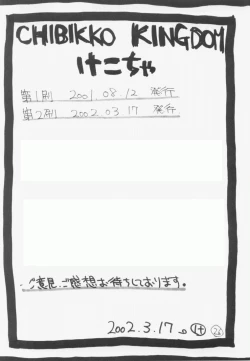 CHIBIKKO KINGDOM
けこちゃ
第1刷 2001.08.12 発行
第2刷 2002.03.17 発行
ご意見、ご感想お待ちしております。
2002.3.17 。け 26